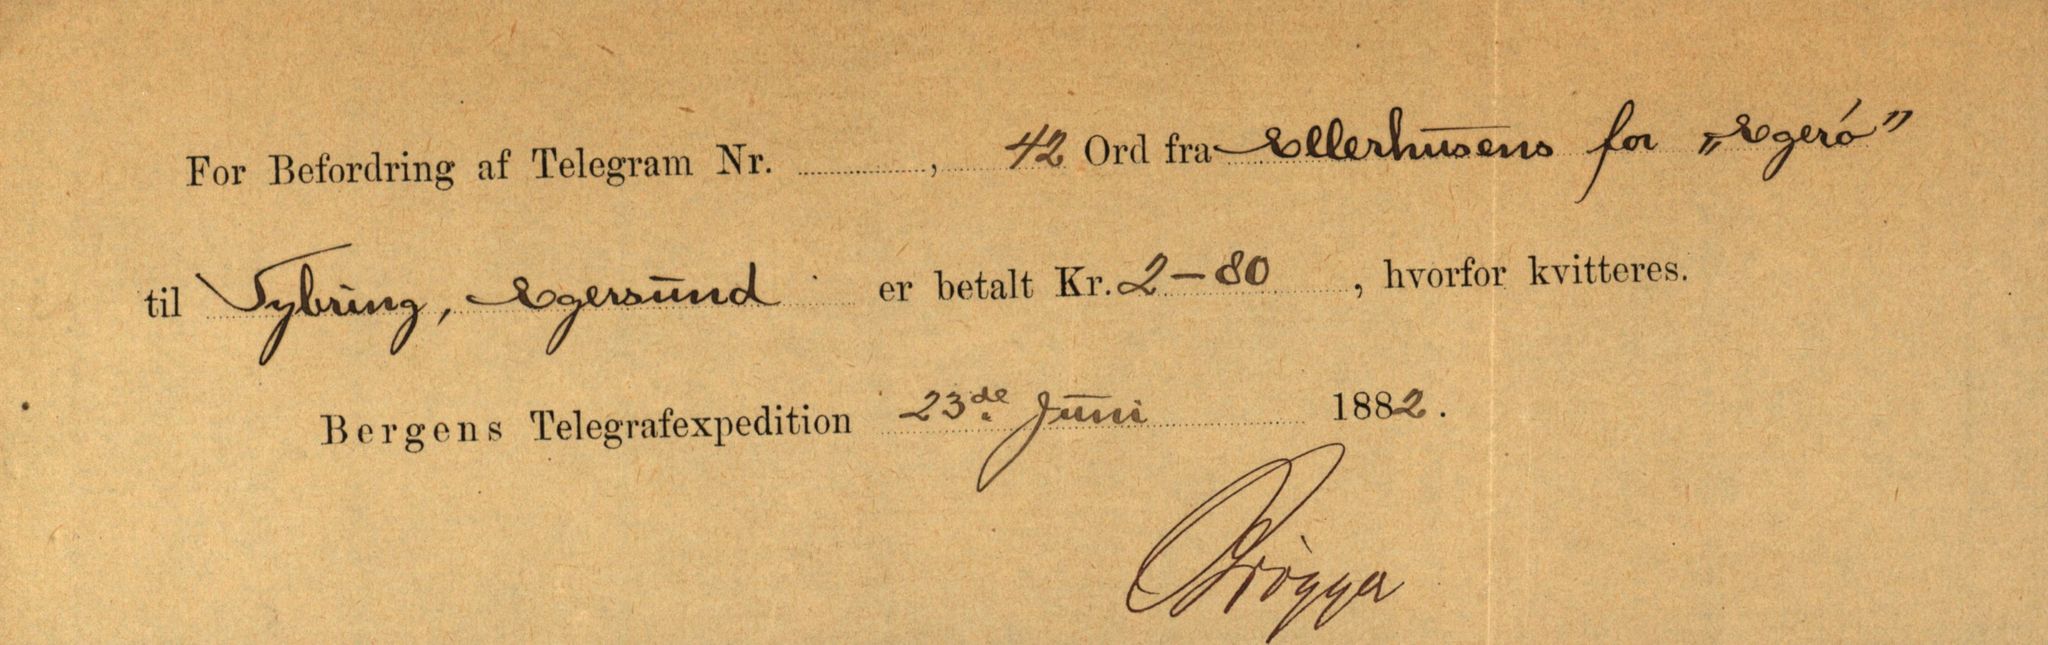 For Befordring af Telegram Nr. , 42 Ord fra Ellerhusens for „Egerö”
til Tybring, Egersund er betalt Kr. 2-80 , hvorfor kvitteres.
Bergens Telegrafexpedition 23de Juni 1882.
Brögger